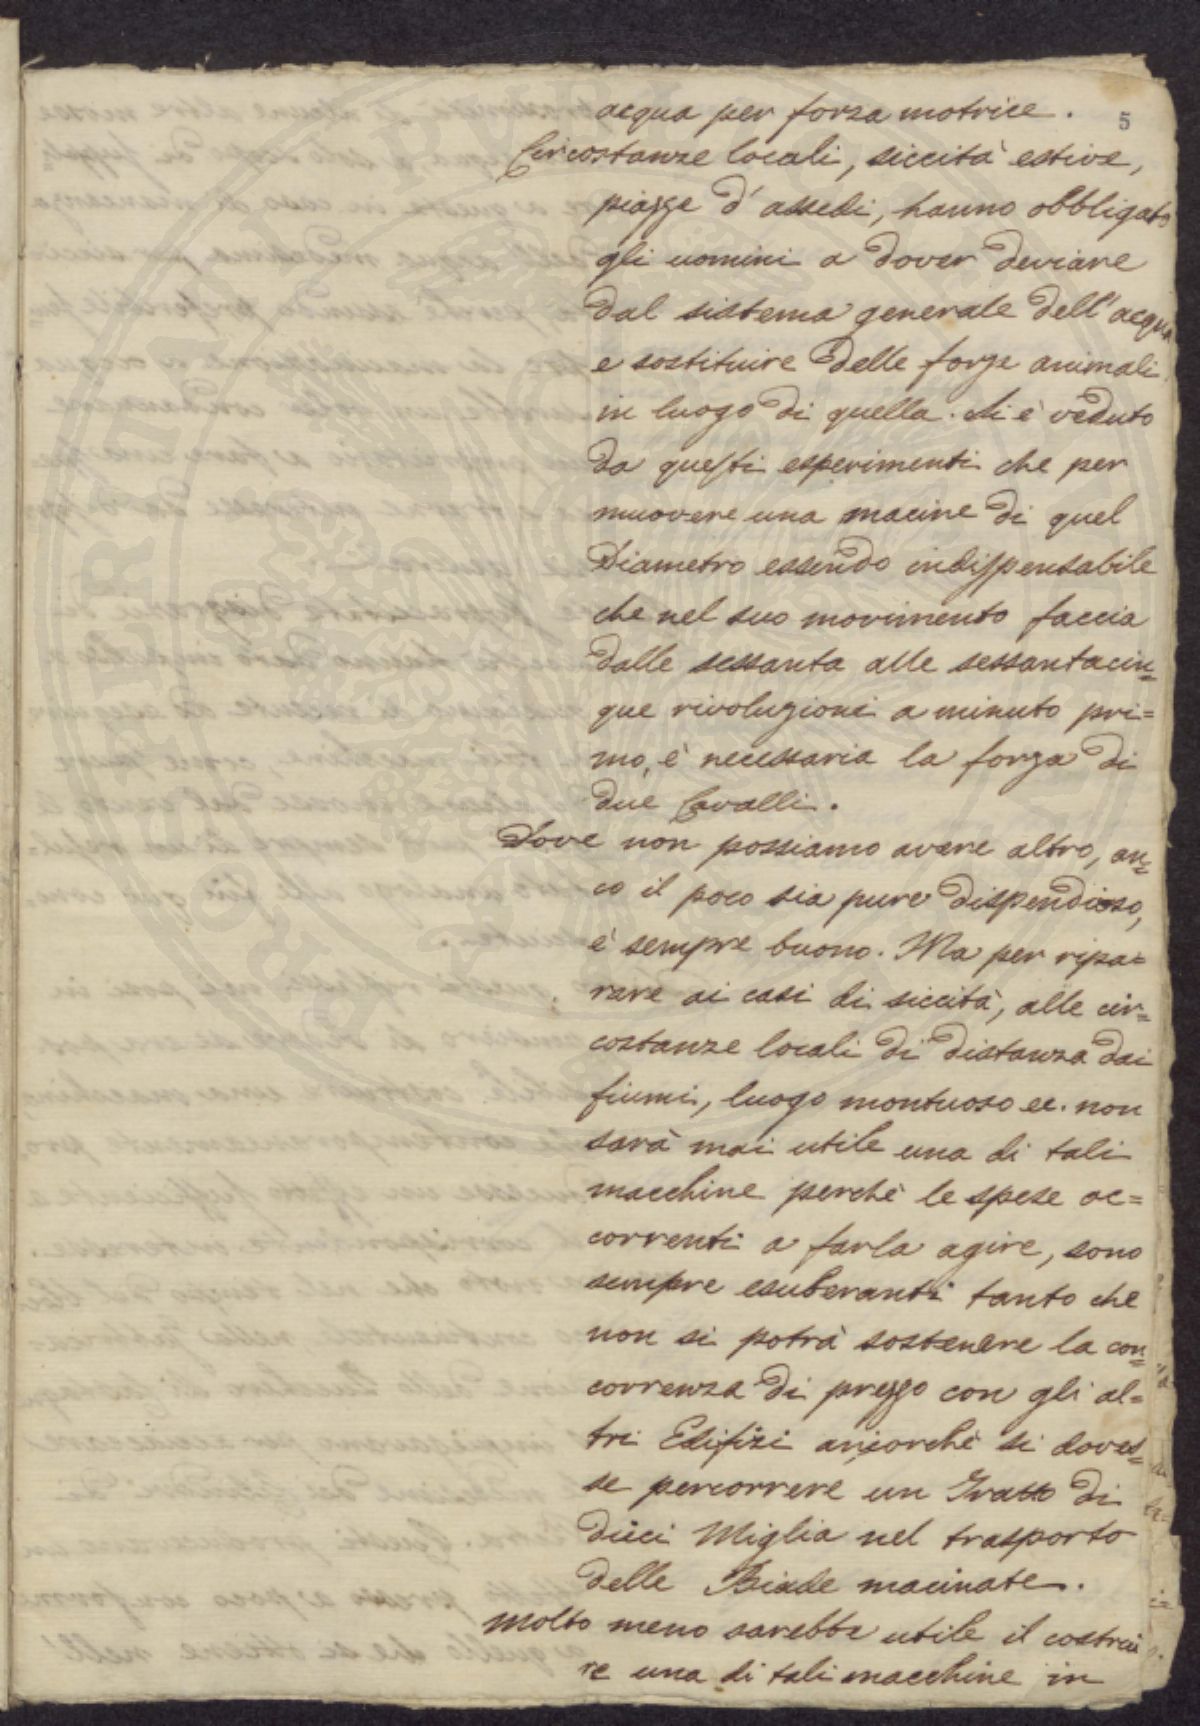 acqua per forza motrice.
5
Circostanze locali, siccità estive,
piazze d'assedi, hanno obbligato
gli uomini a dover deviare
dal sistema generale dell'acqua
e sostituire delle forze animali
in luogo di quella. Si è veduto
da questi esperimenti che per
muovere una macine di quel
Diametro essendo indispensabile
che nel suo movimento faccia
dalle sessanta alle sessantacin=
que rivoluzioni a minuto pri=
mo, è necessaria la forza di
due Cavalli.
Dove non possiamo avere altro, an=
co il poco sia pure dispendioso,
è sempre buono. Ma per ripa=
rare ai casi di siccità, alle cir=
costanze locali di distanza dai
fiumi, luogo montuoso ec. non
sarà mai utile una di tali
macchine perchè le spese oc=
correnti a farla agire, sono
sempre esuberanti tanto che
non si potrà sostenere la con=
correnza di prezzo con gli al=
tri Edifizi ancorchè si doves=
se percorrere un Tratto di
dieci Miglia nel trasporto
delle Biade macinate.
Molto meno sarebbe utile il costrui
re una di tali macchine in